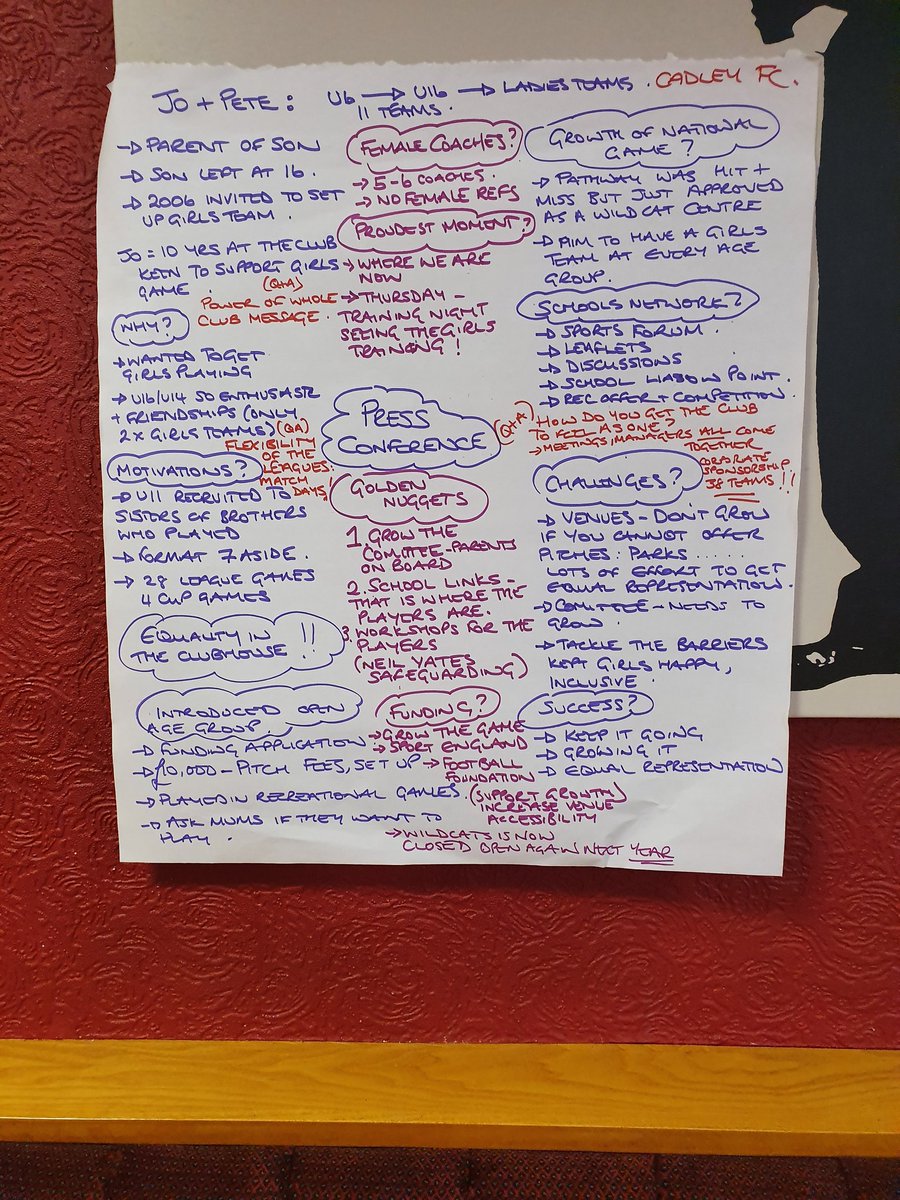 JO + PETE: U6 → U16 → LADIES TEAMS. CADLEY FC.
11 TEAMS.
→ PARENT OF SON
→ SON LEFT AT 16.
→ 2006 INVITED TO SET
UP GIRLS TEAM.
JO = 10 YRS AT THE CLUB
KEEN TO SUPPORT GIRLS
GAME.
(Q+A)
POWER OF WHOLE
CLUB MESSAGE.
WHY?
→ WANTED TO GET
GIRLS PLAYING
→ U16/U14 SO ENTHUSASTR
+ FRIENDSHIPS (ONLY
2X GIRLS TEAMS)
(QA)
FLEXIBILITY
OF THE
LEAGUES:
MATCH
DAYS!
MOTIVATIONS?
→ U11 RECRUITED TO
SISTERS OF BROTHERS
WHO PLAYED
→ FORMAT 7 ASIDE.
→ 28 LEAGUE GAMES
4 CUP GAMES
EQUALITY IN
THE CLUBHOUSE !!
INTRODUCED OPEN
AGE GROUP.
→ FUNDING APPLICATION
→ £10,000 – PITCH FEES, SET UP
→ PLAYED IN RECREATIONAL GAMES.
→ ASK MUMS IF THEY WANT TO
PLAY.
FEMALE COACHES?
→ 5-6 COACHES.
→ NO FEMALE REFS
PROUDEST MOMENT?
→ WHERE WE ARE
NOW
→ THURSDAY –
TRAINING NIGHT
SEEING THE GIRLS
TRAINING!
PRESS
CONFERENCE
GOLDEN
NUGGETS
1. GROW THE
COMITTEE – PARENTS
ON BOARD
2. SCHOOL LINKS –
THAT IS WHERE THE
PLAYERS ARE.
3. WORKSHOPS FOR THE
PLAYERS
(NEIL YATES
SAFEGUARDING)
FUNDING?
→ GROW THE GAME
→ SPORT ENGLAND
→ FOOTBALL
FOUNDATION
(SUPPORT GROWTH)
INCREASE VENUE
ACCESSIBILITY
→ WILDCATS IS NOW
CLOSED OPEN AGAIN NEXT YEAR
GROWTH OF NATIONAL
GAME?
→ PATHWAY WAS HIT +
MISS BUT JUST APPROVED
AS A WILDCAT CENTRE
→ AIM TO HAVE A GIRLS
TEAM AT EVERY AGE
GROUP.
SCHOOLS NETWORK?
→ SPORTS FORUM.
→ LEAFLETS
→ DISCUSSIONS
→ SCHOOL LIASON POINT.
→ REC OFFER + COMPETITION.
(Q+A) HOW DO YOU GET THE CLUB
TO FEEL AS ONE?
→ MEETINGS, MANAGERS ALL COME
TOGETHER
CORORATE
SPONSORSHIP.
38 TEAMS!!
CHALLENGES?
→ VENUES – DON'T GROW
IF YOU CANNOT OFFER
PITCHES: PARKS.....
LOTS OF EFFORT TO GET
EQUAL REPRESENTATION.
→ COMITTEE – NEEDS TO
GROW.
→ TACKLE THE BARRIERS
KEPT GIRLS HAPPY,
INCLUSIVE.
SUCCESS?
→ KEEP IT GOING
→ GROWING IT
→ EQUAL REPRESENTATION